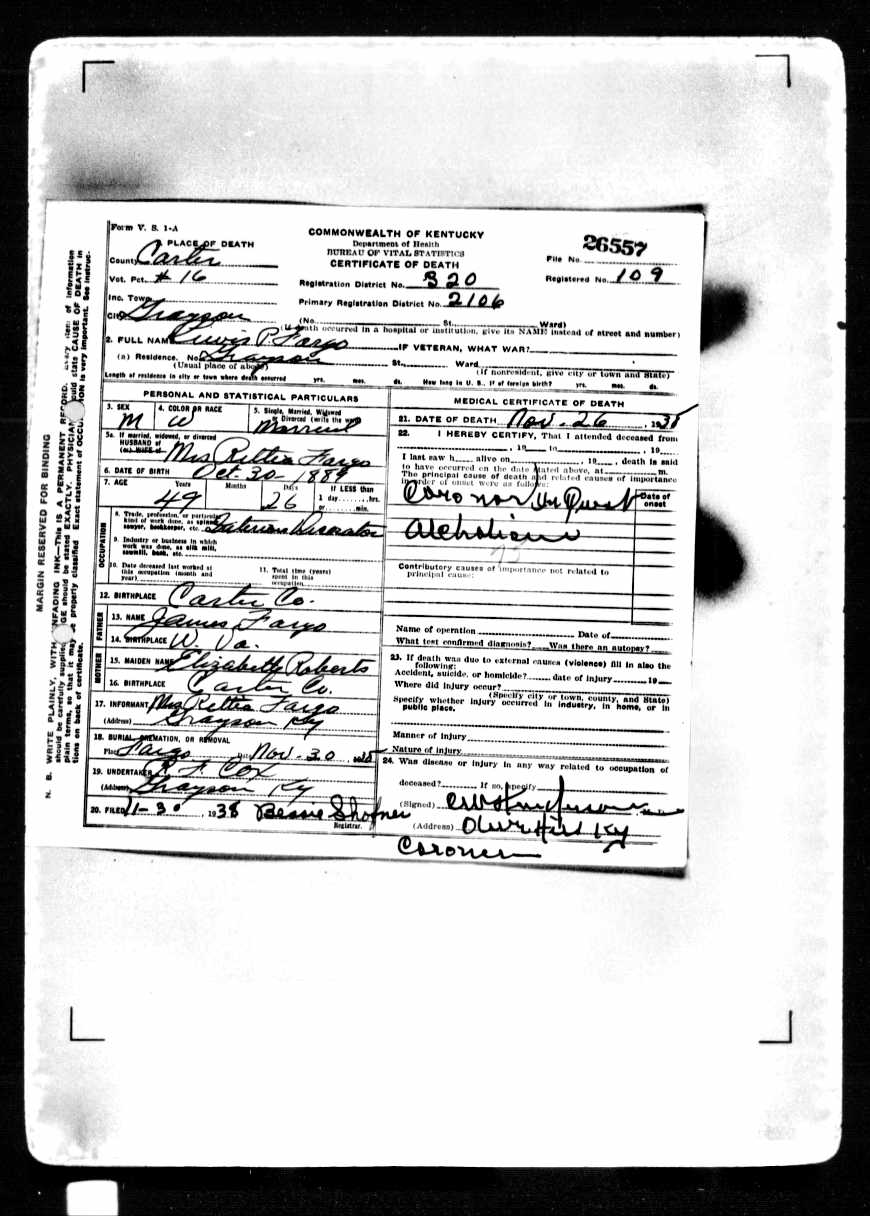 Form V. S. 1-A
PLACE OF DEATH
County Carter
Vot. Pct. #16
Inc. Town
City Grayson
COMMONWEALTH OF KENTUCKY
Department of Health
BUREAU OF VITAL STATISTICS
CERTIFICATE OF DEATH
Registration District No. 320
Primary Registration District No. 2106
File No. 26557
Registered No. 109
(No. St., Ward)
(If death occurred in a hospital or institution, give its NAME instead of street and number)
2. FULL NAME Lewis P. Fargo IF VETERAN, WHAT WAR?
(a) Residence. No. Grayson St., Ward
(Usual place of abode) (If nonresident, give city or town and State)
Length of residence in city or town where death occurred yrs. mos. ds. How long in U. S., if of foreign birth? yrs. mos. ds.
PERSONAL AND STATISTICAL PARTICULARS
3. SEX M 4. COLOR OR RACE W 5. Single, Married, Widowed or Divorced (write the word) Married
5a. If married, widowed, or divorced
HUSBAND of
(or) WIFE of Mrs Rettia Fargo
6. DATE OF BIRTH Oct-30-1889
7. AGE Years 49 Months Days 26 IF LESS than
1 day, hrs.
or min.
OCCUPATION
8. Trade, profession, or particular
kind of work done, as spinner,
sawyer, bookkeeper, etc. Interior Decorator
9. Industry or business in which
work was done, as silk mill,
sawmill, bank, etc.
10. Date deceased last worked at
this occupation (month and
year)
11. Total time (years)
spent in this
occupation
12. BIRTHPLACE Carter Co.
FATHER
13. NAME James Fargo
14. BIRTHPLACE W. Va.
MOTHER
15. MAIDEN NAME Elizabeth Roberts
16. BIRTHPLACE Carter Co.
17. INFORMANT Mrs Rettia Fargo
(Address) Grayson Ky
18. BURIAL, CREMATION, OR REMOVAL
Place Fargo Date Nov-30 1938
19. UNDERTAKER Cox
(Address) Grayson Ky
20. FILED 11-30, 1938 Bessie Shofner
Registrar.
MEDICAL CERTIFICATE OF DEATH
21. DATE OF DEATH Nov-26, 1938
22. I HEREBY CERTIFY, That I attended deceased from
, 19 to , 19
I last saw h alive on , 19 , death is said
to have occurred on the date stated above, at m.
The principal cause of death and related causes of importance
in order of onset were as follows:
Date of
onset
Coroner In Quest
Alcholism
75
Contributory causes of importance not related to
principal cause:
Name of operation Date of
What test confirmed diagnosis? Was there an autopsy?
23. If death was due to external causes (violence) fill in also the
following:
Accident, suicide, or homicide? date of injury 19
Where did injury occur?
(Specify city or town, county, and State)
Specify whether injury occurred in industry, in home, or in
public place.
Manner of injury
Nature of injury
24. Was disease or injury in any way related to occupation of
deceased? If so, specify
(Signed)
(Address) Olive Hill Ky
Coroner
MARGIN RESERVED FOR BINDING